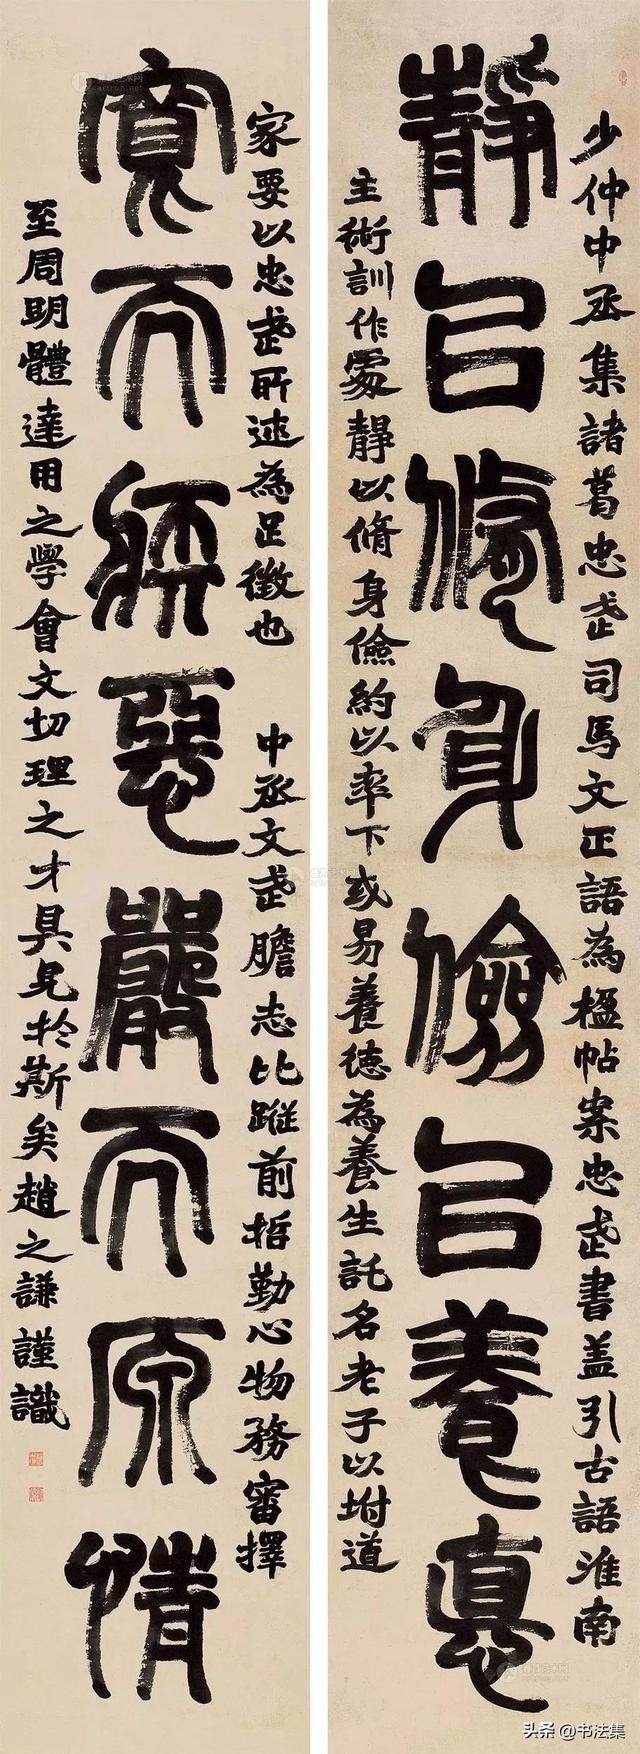 少仲中丞集諸葛忠武司馬文正語為楹帖案忠武書盖引古語淮南
靜㠯脩身儉㠯養悳
主術訓作處靜以脩身儉約以率下或易養德為養生託名老子以坿道
家要以忠武所述為足徵也 中丞文武膽志比蹤前哲勤心物務審擇
寬而疾惡嚴而原情
至周明體達用之學會文切理之才具見於斯矣趙之謙謹識
头条 @书法集